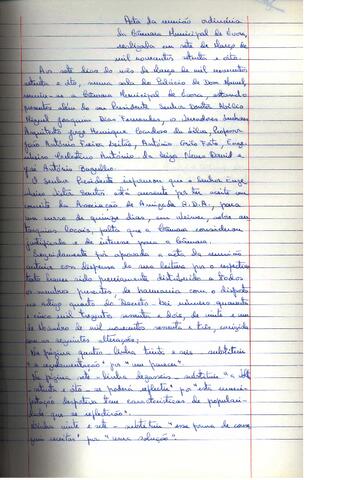 Acta da reunião ordinária
da Câmara Municipal de Évora,
realizada em sete de Março de
mil novecentos setenta e oito.
Aos sete dias do mês de Março de mil novecentos
setenta e oito, numa sala do Palácio de Dom Manuel
reuniu-se a Câmara Municipal de Évora, estando
presentes além do seu Presidente Senhor Doutor Abílio
Miguel Joaquim Dias Fernandes, os Vereadores Senhores
Arquitecto Jorge Henrique da Silva, Professor
João António, António, Enge-
nheiro Celestino António da Veiga Neves David e
José António Bagulho.
O Senhor Presidente informou que o Senhor Enge-
nheiro Santos está ausente por ter aceite um
convite da Associação de Amizade R.D.A., para
um curso de quinze dias, em, sobre au-
tarquias locais, falta que a Câmara considerou
justificada e de interesse para a Câmara.
Seguidamente foi aprovada a acta da reunião
anterior com dispensa da sua leitura por o respectivo
texto haver sido previamente distribuído a todos
os membros presentes de harmonia com o disposto
no artigo quarto do Decreto-Lei número quarenta
e cinco mil trezentos sessenta e dois, de vinte e um
de Novembro de mil novecentos sessenta e três, corrigida
com as seguintes alterações:
Na página quatro - linha trinta e seis - substituir
"a regulamentação" por "um parecer".
Na página sete - linha dezasseis - substituir "a
- se poderá reflectir" por "esta manifes-
tação desportiva tem características de populari-
dade que se reflectirão".
Linha vinte e sete - substituir "
" por "uma solução".